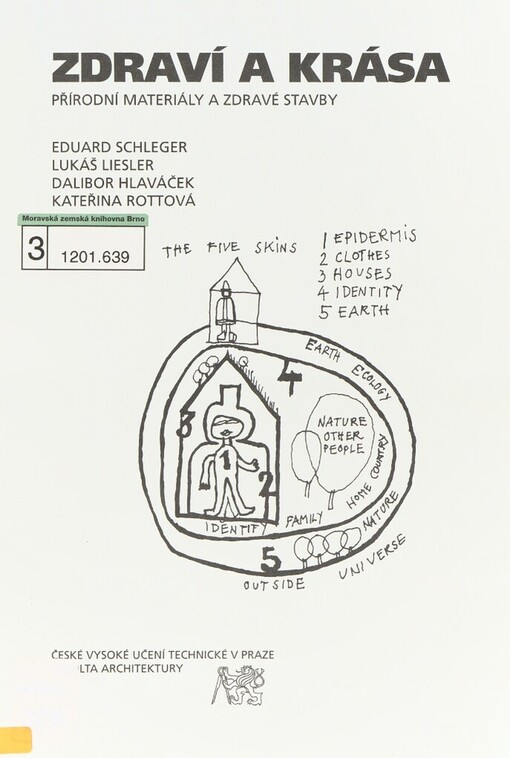 ZDRAVÍ A KRÁSA
PŘÍRODNÍ MATERIÁLY A ZDRAVÉ STAVBY
EDUARD SCHLEGER
LUKÁŠ LIESLER
DALIBOR HLAVÁČEK
KATEŘINA ROTTOVÁ
Moravská zemská knihovna Brno
3 1201.639
THE FIVE SKINS
1 EPIDERMIS
2 CLOTHES
3 HOUSES
4 IDENTITY
5 EARTH
EARTH ECOLOGY
4
3
NATURE
OTHER
PEOPLE
1
2
HOME COUNTRY
IDENTITY FAMILY
NATURE
5
UNIVERSE
OUTSIDE
ČESKÉ VYSOKÉ UČENÍ TECHNICKÉ V PRAZE
LTA ARCHITEKTURY